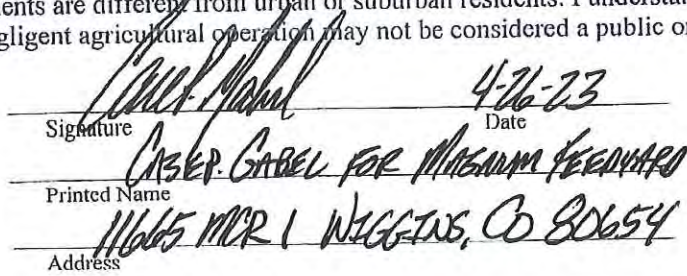 ents are different from urban or suburban residents. I understa
gligent agricultural operation may not be considered a public o
4-26-23
Signature Date
CASE P. GABEL FOR MAGNUM FEEDYARD
Printed Name
11665 MCR 1 WIGGINS, CO 80654
Address